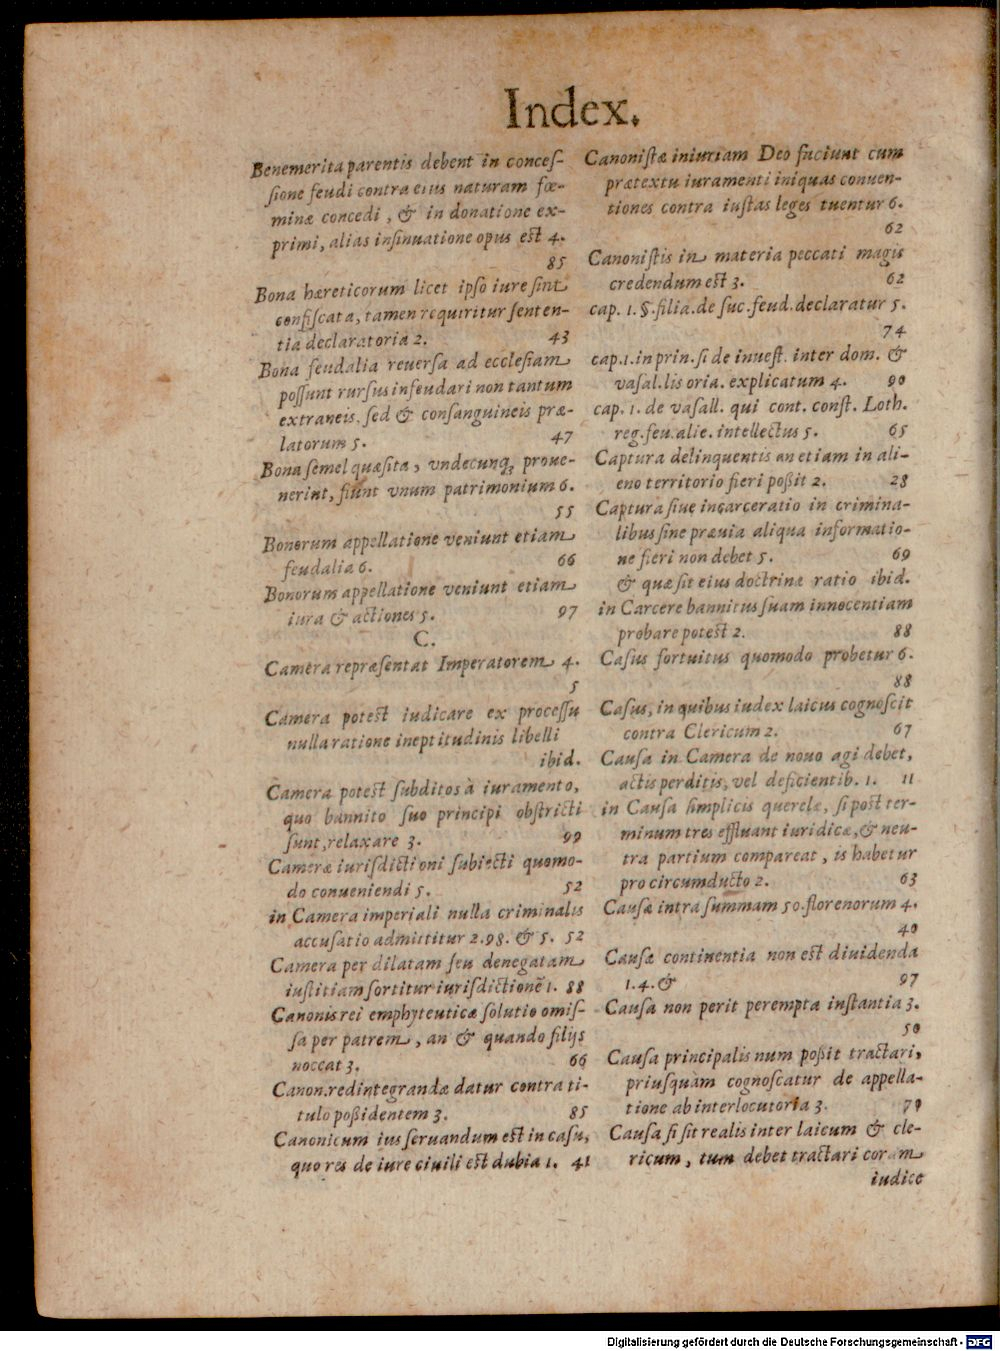 Index.
Benemerita parentis debent in conceſ-
ſione feudi contra eius naturam fœ-
minæ concedi, & in donatione ex-
primi, alias inſinuatione opus est 4.
85
Bona hæreticorum licet ipſo iure ſint
confiſcata, tamen requiritur ſenten-
tia declaratoria 2. 43
Bona feudalia reuerſa ad eccleſiam
poſſunt rurſus infeudari non tantum
extraneis, ſed & conſanguineis præ-
latorum 5. 47
Bona ſemel quæſita, vndecunq; proue-
nerint, fiunt vnum patrimonium 6.
55
Bonorum appellatione veniunt etiam
feudalia 6. 66
Bonorum appellatione veniunt etiam
iura & actiones 5. 97
C.
Camera repræſentat Imperatorem 4.
5
Camera potest iudicare ex proceſſu
nulla ratione ineptitudinis libelli
ibid.
Camera potest ſubditos à iuramento,
quo bannito ſuo principi obſtricti
ſunt, relaxare 3. 99
Cameræ iurisdictioni ſubiecti quomo-
do conueniendi 5. 52
in Camera imperiali nulla criminalis
accuſatio admittitur 2.98. & 5. 52
Camera per dilatam ſeu denegatam
iustitiam ſortitur iurisdictionẽ 1. 88
Canonis rei emphyteuticæ ſolutio omiſ-
ſa per patrem, an & quando filijs
noceat 3. 66
Canon.redintegrandæ datur contra ti-
tulo poßidentem 3. 85
Canonicum ius ſeruandum est in caſu,
quo res de iure ciuili est dubia 1. 41
Canoniſtæ iniuriam Deo faciunt cum
prætextu iuramenti iniquas conuen-
tiones contra iuſtas leges tuentur 6.
62
Canoniſtis in materia peccati magis
credendum est 3. 62
cap. 1. §. filia. de ſuc. feud. declaratur 5.
74
cap. 1. in prin. ſi de inuest. inter dom. &
vaſal. lis oria. explicatum 4. 90
cap. 1. de vaſall. qui cont. conſt. Loth.
reg. feu. alie. intellectus 5. 65
Captura delinquentis an etiam in ali-
eno territorio fieri poßit 2. 28
Captura ſiue incarceratio in crimina-
libus ſine præuia aliqua informatio-
ne fieri non debet 5. 69
& quæ ſit eius doctrinæ ratio ibid.
in Carcere bannitus ſuam innocentiam
probare potest 2. 88
Caſus fortuitus quomodo probetur 6.
88
Caſus, in quibus iudex laicus cognoſcit
contra Clericum 2. 67
Cauſa in Camera de nouo agi debet,
actis perditis, vel deficientib. 1. 11
in Cauſa ſimplicis querelæ, ſi post ter-
minum tres effluant iuridicæ, & neu-
tra partium compareat, is habetur
pro circumducto 2. 63
Cauſæ intra ſummam 50. florenorum 4.
40
Cauſæ continentia non est diuidenda
1. 4. & 97
Cauſa non perit perempta inſtantia 3.
50
Cauſa principalis num poßit tractari,
priuſquàm cognoſcatur de appella-
tione ab interlocutoria 3.
Cauſa ſi ſit realis inter laicum & cle-
ricum, tum debet tractari coram
iudice
Digitalisierung gefördert durch die Deutsche Forschungsgemeinschaft - DFG